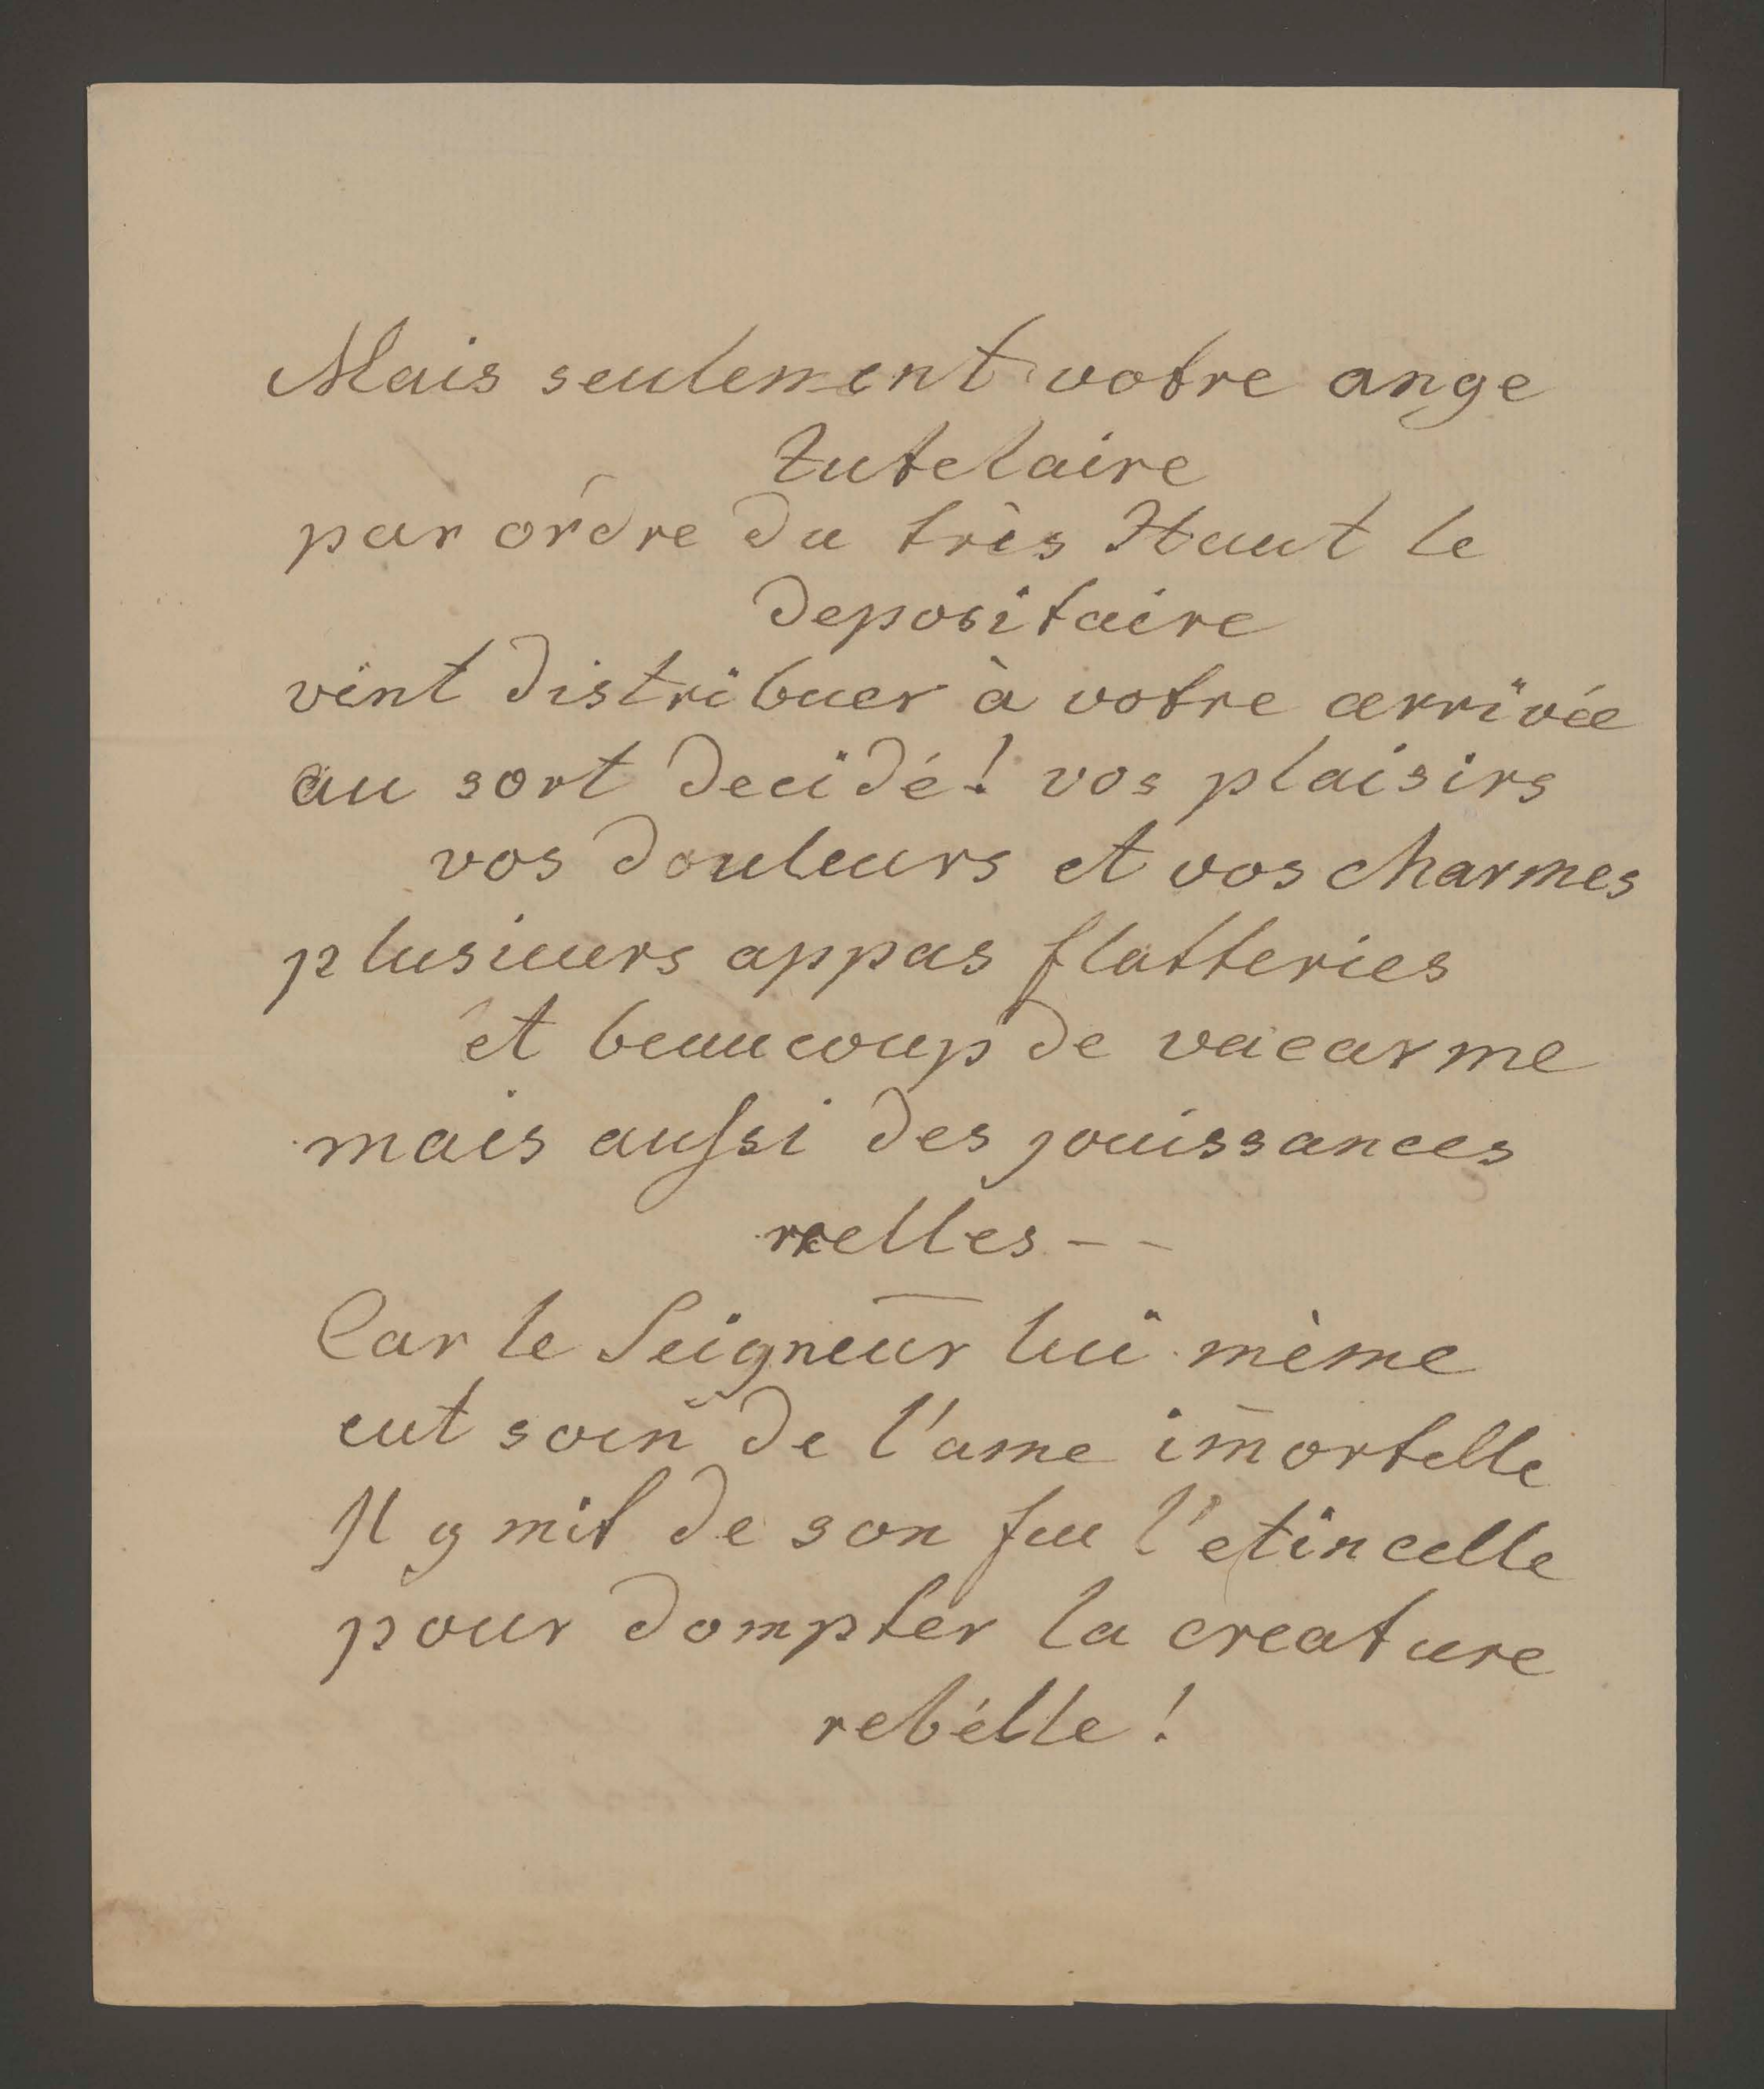 Mais seulement votre ange
tutelaire
par ordre du très Haut le
depositaire
vint distribuer à votre arrivée
au sort decidé! vos plaisirs
vos douleurs et vos charmes
plusieurs appas flatteries
et beaucoup de vacarme
mais aussi des jouissances
reelles - -
Car le Seigneur lui mème
eut soin de l'ame im̄ortelle
Il y mit de son feu l'etincelle
pour dompter la creature
rebélle!